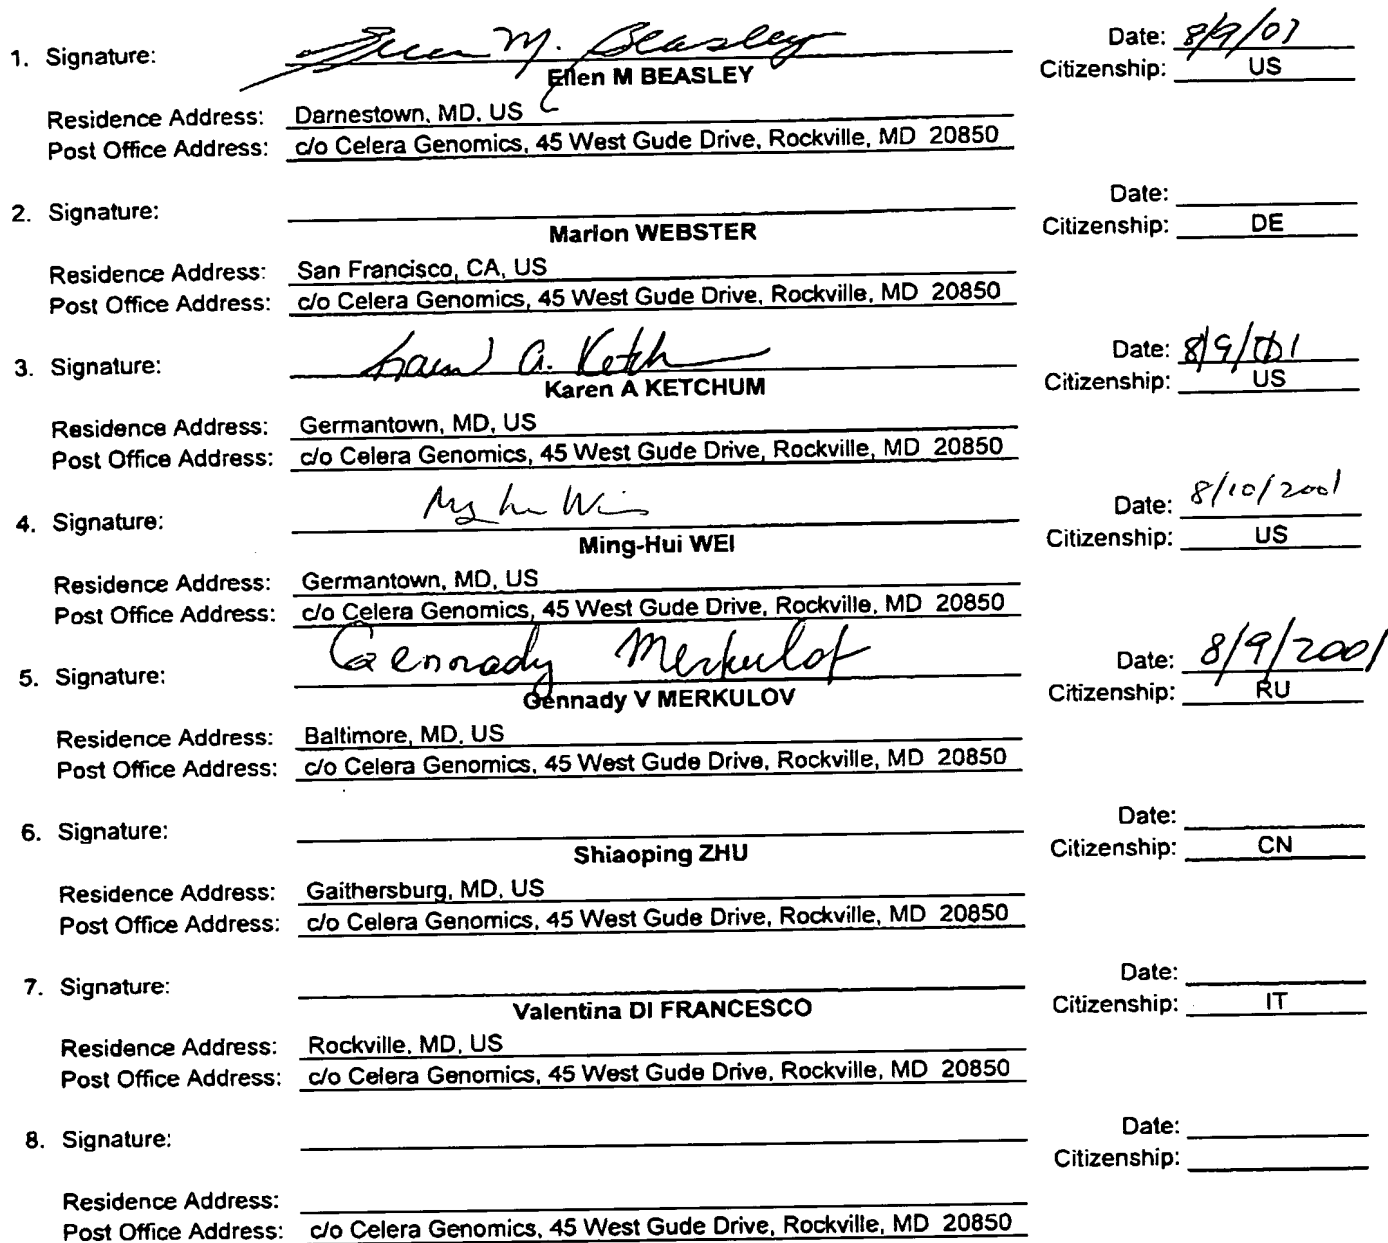 1. Signature: Ellen M. Beasley Date: 8/9/01
Ellen M BEASLEY Citizenship: US
Residence Address: Darnestown, MD, US
Post Office Address: c/o Celera Genomics, 45 West Gude Drive, Rockville, MD 20850
2. Signature: Date:
Marion WEBSTER Citizenship: DE
Residence Address: San Francisco, CA, US
Post Office Address: c/o Celera Genomics, 45 West Gude Drive, Rockville, MD 20850
3. Signature: Date: 8/9/01
Karen A KETCHUM Citizenship: US
Residence Address: Germantown, MD, US
Post Office Address: c/o Celera Genomics, 45 West Gude Drive, Rockville, MD 20850
4. Signature: Date: 8/10/2001
Ming-Hui WEI Citizenship: US
Residence Address: Germantown, MD, US
Post Office Address: c/o Celera Genomics, 45 West Gude Drive, Rockville, MD 20850
5. Signature: Gennady Merkulov Date: 8/9/2001
Gennady V MERKULOV Citizenship: RU
Residence Address: Baltimore, MD, US
Post Office Address: c/o Celera Genomics, 45 West Gude Drive, Rockville, MD 20850
6. Signature: Date:
Shiaoping ZHU Citizenship: CN
Residence Address: Gaithersburg, MD, US
Post Office Address: c/o Celera Genomics, 45 West Gude Drive, Rockville, MD 20850
7. Signature: Date:
Valentina DI FRANCESCO Citizenship: IT
Residence Address: Rockville, MD, US
Post Office Address: c/o Celera Genomics, 45 West Gude Drive, Rockville, MD 20850
8. Signature: Date:
Citizenship:
Residence Address:
Post Office Address: c/o Celera Genomics, 45 West Gude Drive, Rockville, MD 20850